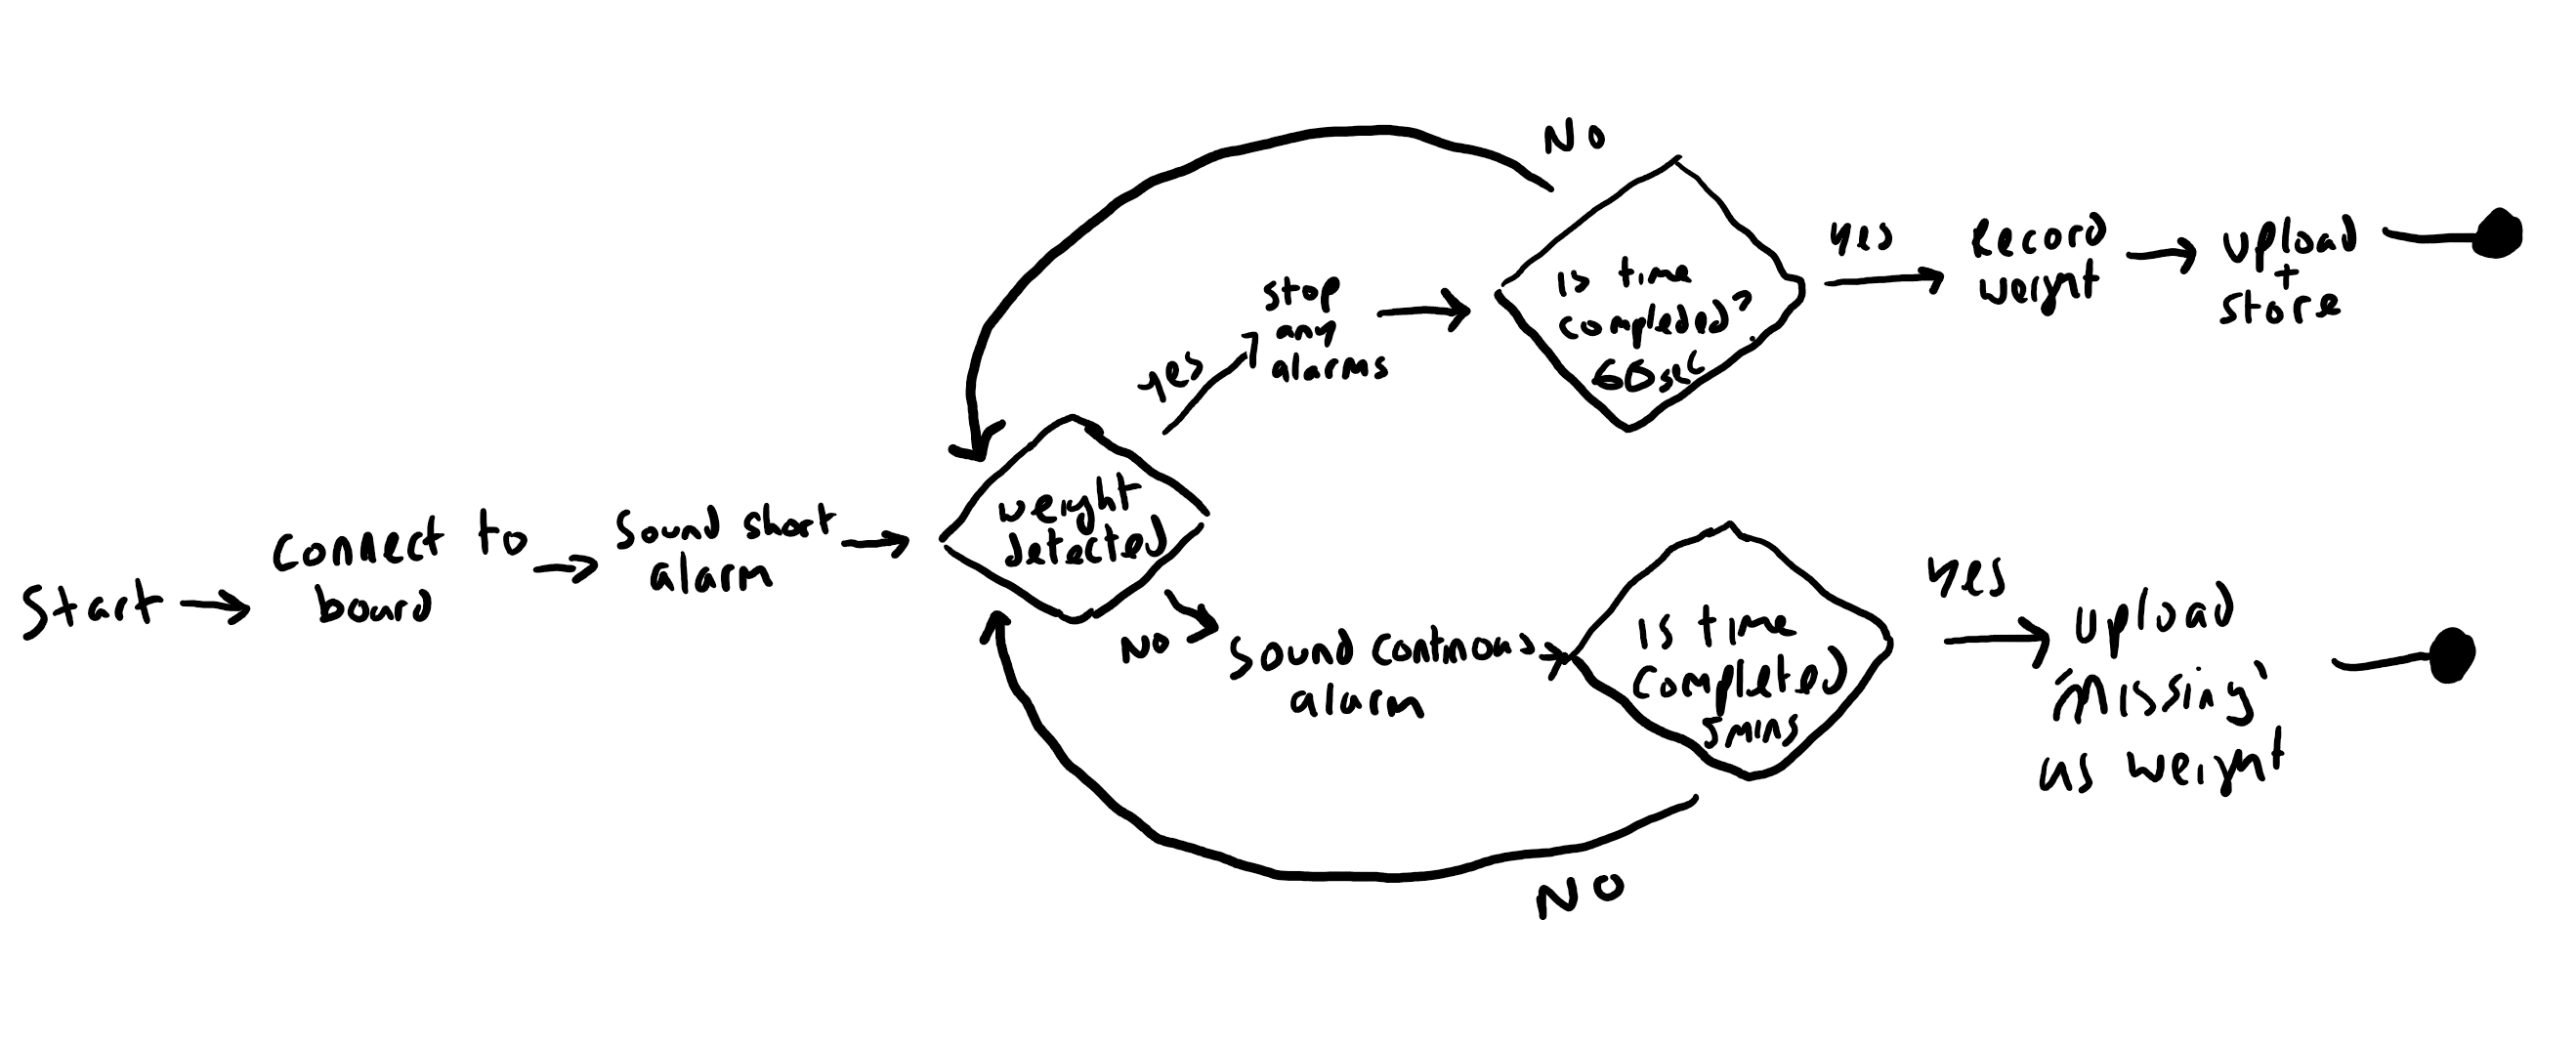 Start
Connect to
board
Sound short
alarm
weight
detected
yes
stop
any
alarms
No
is time
compleded?
60sec
yes
Record
weight
upload
+
store
No
Sound continous
alarm
is time
completed
5mins
yes
upload
'missing'
as weight
NO